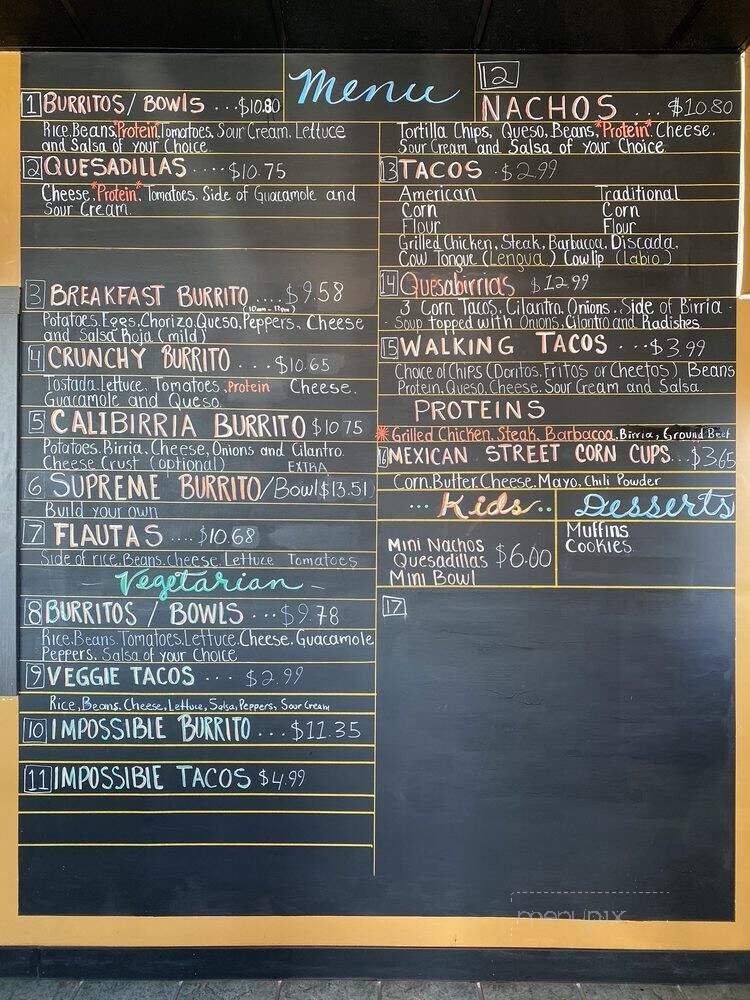 Menu
1 BURRITOS/BOWLS ...$10.80
Rice.Beans."Protein".Tomatoes. Sour Cream. Lettuce
and Salsa of your Choice
2 QUESADILLAS ....$10.75
Cheese."Protein". Tomatoes. Side of Guacamole and
Sour Cream.
3 BREAKFAST BURRITO ....$9.58
(10am-12pm)
Potatoes.Eggs.Chorizo.Queso.Peppers. Cheese
and Salsa Roja (mild)
4 CRUNCHY BURRITO ...$10.65
Tostada.Lettuce. Tomatoes.Protein Cheese.
Guacamole and Queso.
5 CALIBIRRIA BURRITO $10.75
Potatoes.Birria.Cheese,Onions and Cilantro.
Cheese Crust (optional) EXTRA
6 SUPREME BURRITO/Bowl $13.51
Build your own
7 FLAUTAS ....$10.68
Side of rice.Beans.cheese.Lettuce Tomatoes
- Vegetarian -
8 BURRITOS / BOWLS ...$9.78
Rice.Beans.Tomatoes.Lettuce.Cheese.Guacamole
Peppers. Salsa of your Choice
9 VEGGIE TACOS ... $2.99
Rice,Beans,Cheese,Lettuce,Salsa,Peppers,Sour Cream
10 IMPOSSIBLE BURRITO ... $11.35
11 IMPOSSIBLE TACOS $4.99
12
NACHOS ... $10.80
Tortilla Chips, Queso, Beans,"Protein". Cheese.
Sour Cream and Salsa of your Choice
13 TACOS .$2.99
American Traditional
Corn Corn
Flour Flour
Grilled Chicken, Steak, Barbacoa, Discada,
Cow Tongue (Lengua) Cowlip (Labio)
14 Quesabirrias $12.99
3 Corn Tacos, Cilantro, Onions.. Side of Birria-
Soup topped with Onions,Cilantro and Radishes
15 WALKING TACOS ...$3.99
Choice of Chips (Doritos.Fritos or Cheetos) Beans
Protein.Queso.Cheese.Sour Cream and Salsa.
PROTEINS
*Grilled Chicken, Steak, Barbacoa,Birria, Ground Beef
16 MEXICAN STREET CORN CUPS...$3.65
Corn.Butter.Cheese,Mayo,Chili Powder
... Kids ..
Mini Nachos
Quesadillas $6.00
Mini Bowl
Desserts
Muffins
Cookies
17
menupix